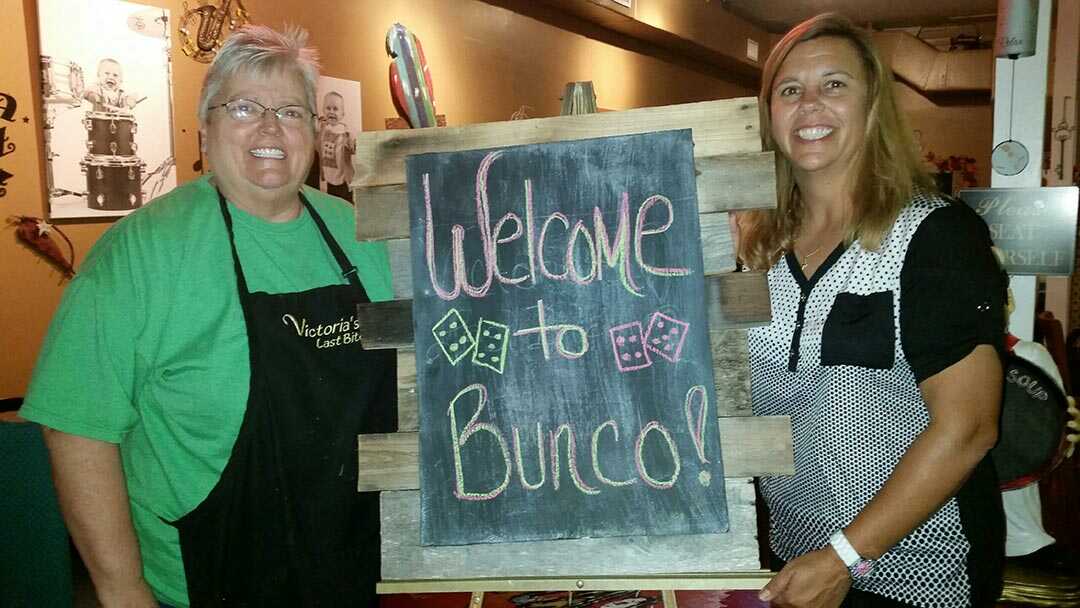 Welcome
to
Bunco!
Victoria's
Last Bite
Please
SEAT
SOUP